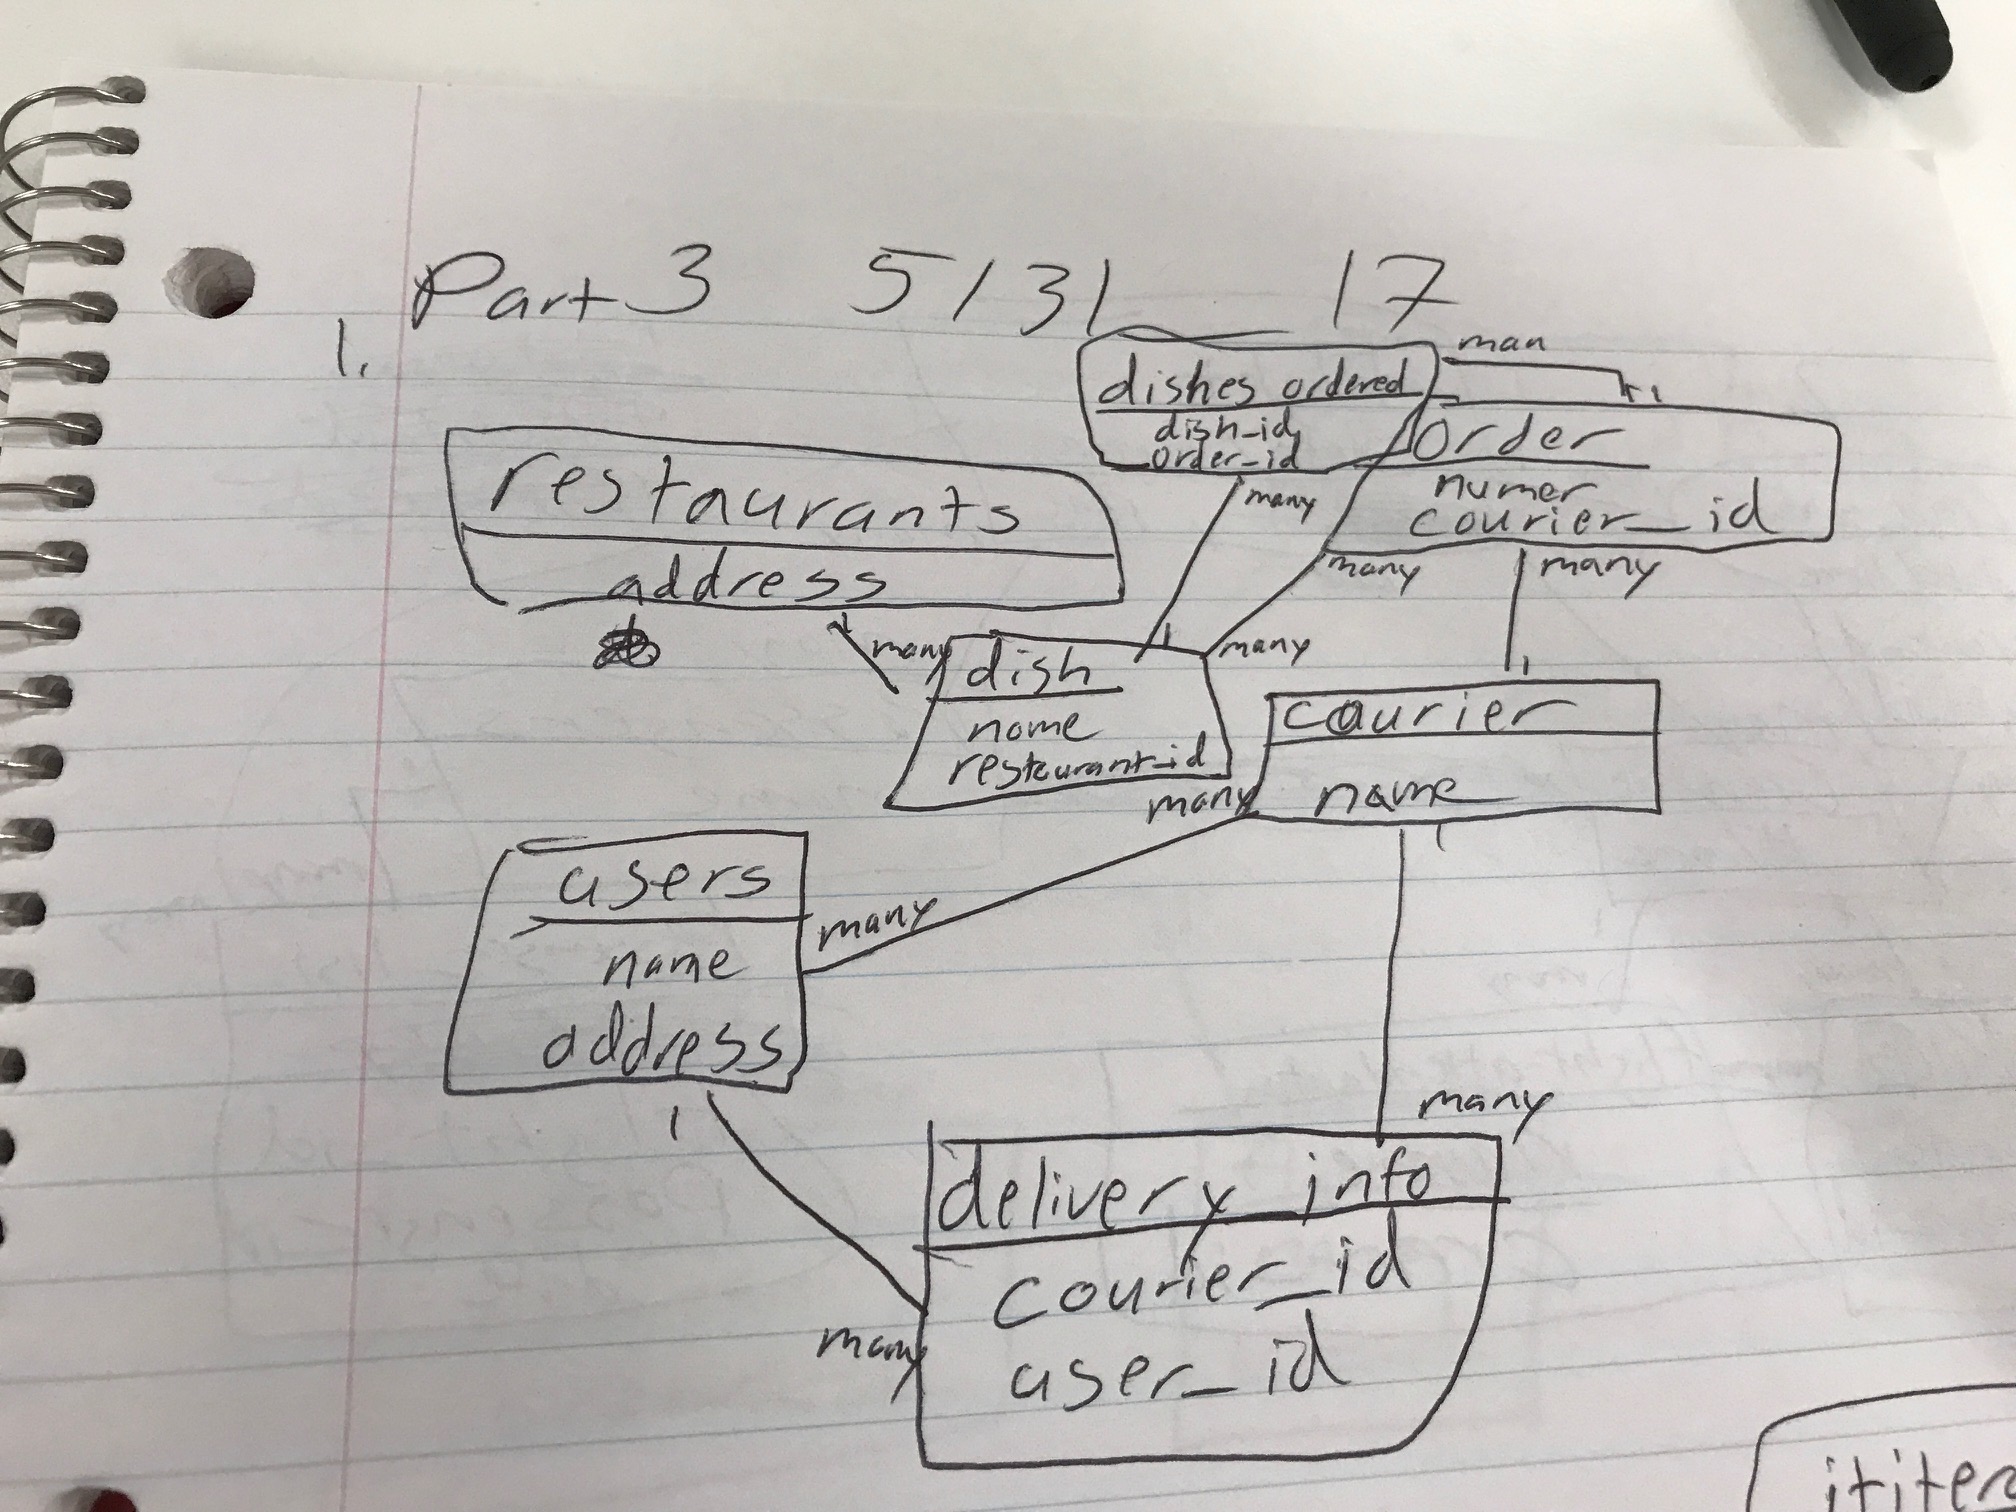 Part 3 5/31 17
1.
man
1
dishes ordered
dish_id
order_id
order
numer
courier_id
restaurants
address
many
many
many
1
many
1
many
dish
name
restaurant_id
1
courier
name
many
1
users
name
address
many
1
many
delivery_info
courier_id
user_id
many